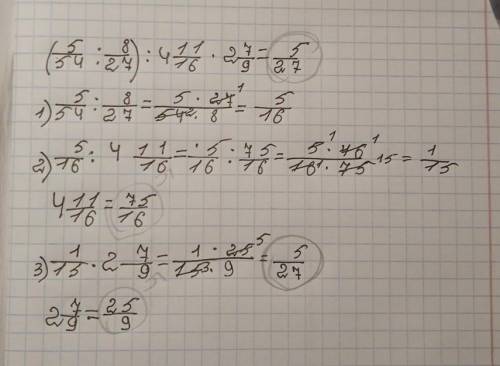 (5/54 : 8/27) : 4 11/16 · 2 7/9 = 5/27
1) 5/54 : 8/27 = 5 · 27¹ / 54² · 8 = 5/16
2) 5/16 : 4 11/16 = 5/16 : 75/16 = 5¹ · 16¹ / 16¹ · 75 15 = 1/15
4 11/16 = 75/16
3) 1/15 · 2 7/9 = 1 · 25⁵ / 15³ · 9 = 5/27
2 7/9 = 25/9